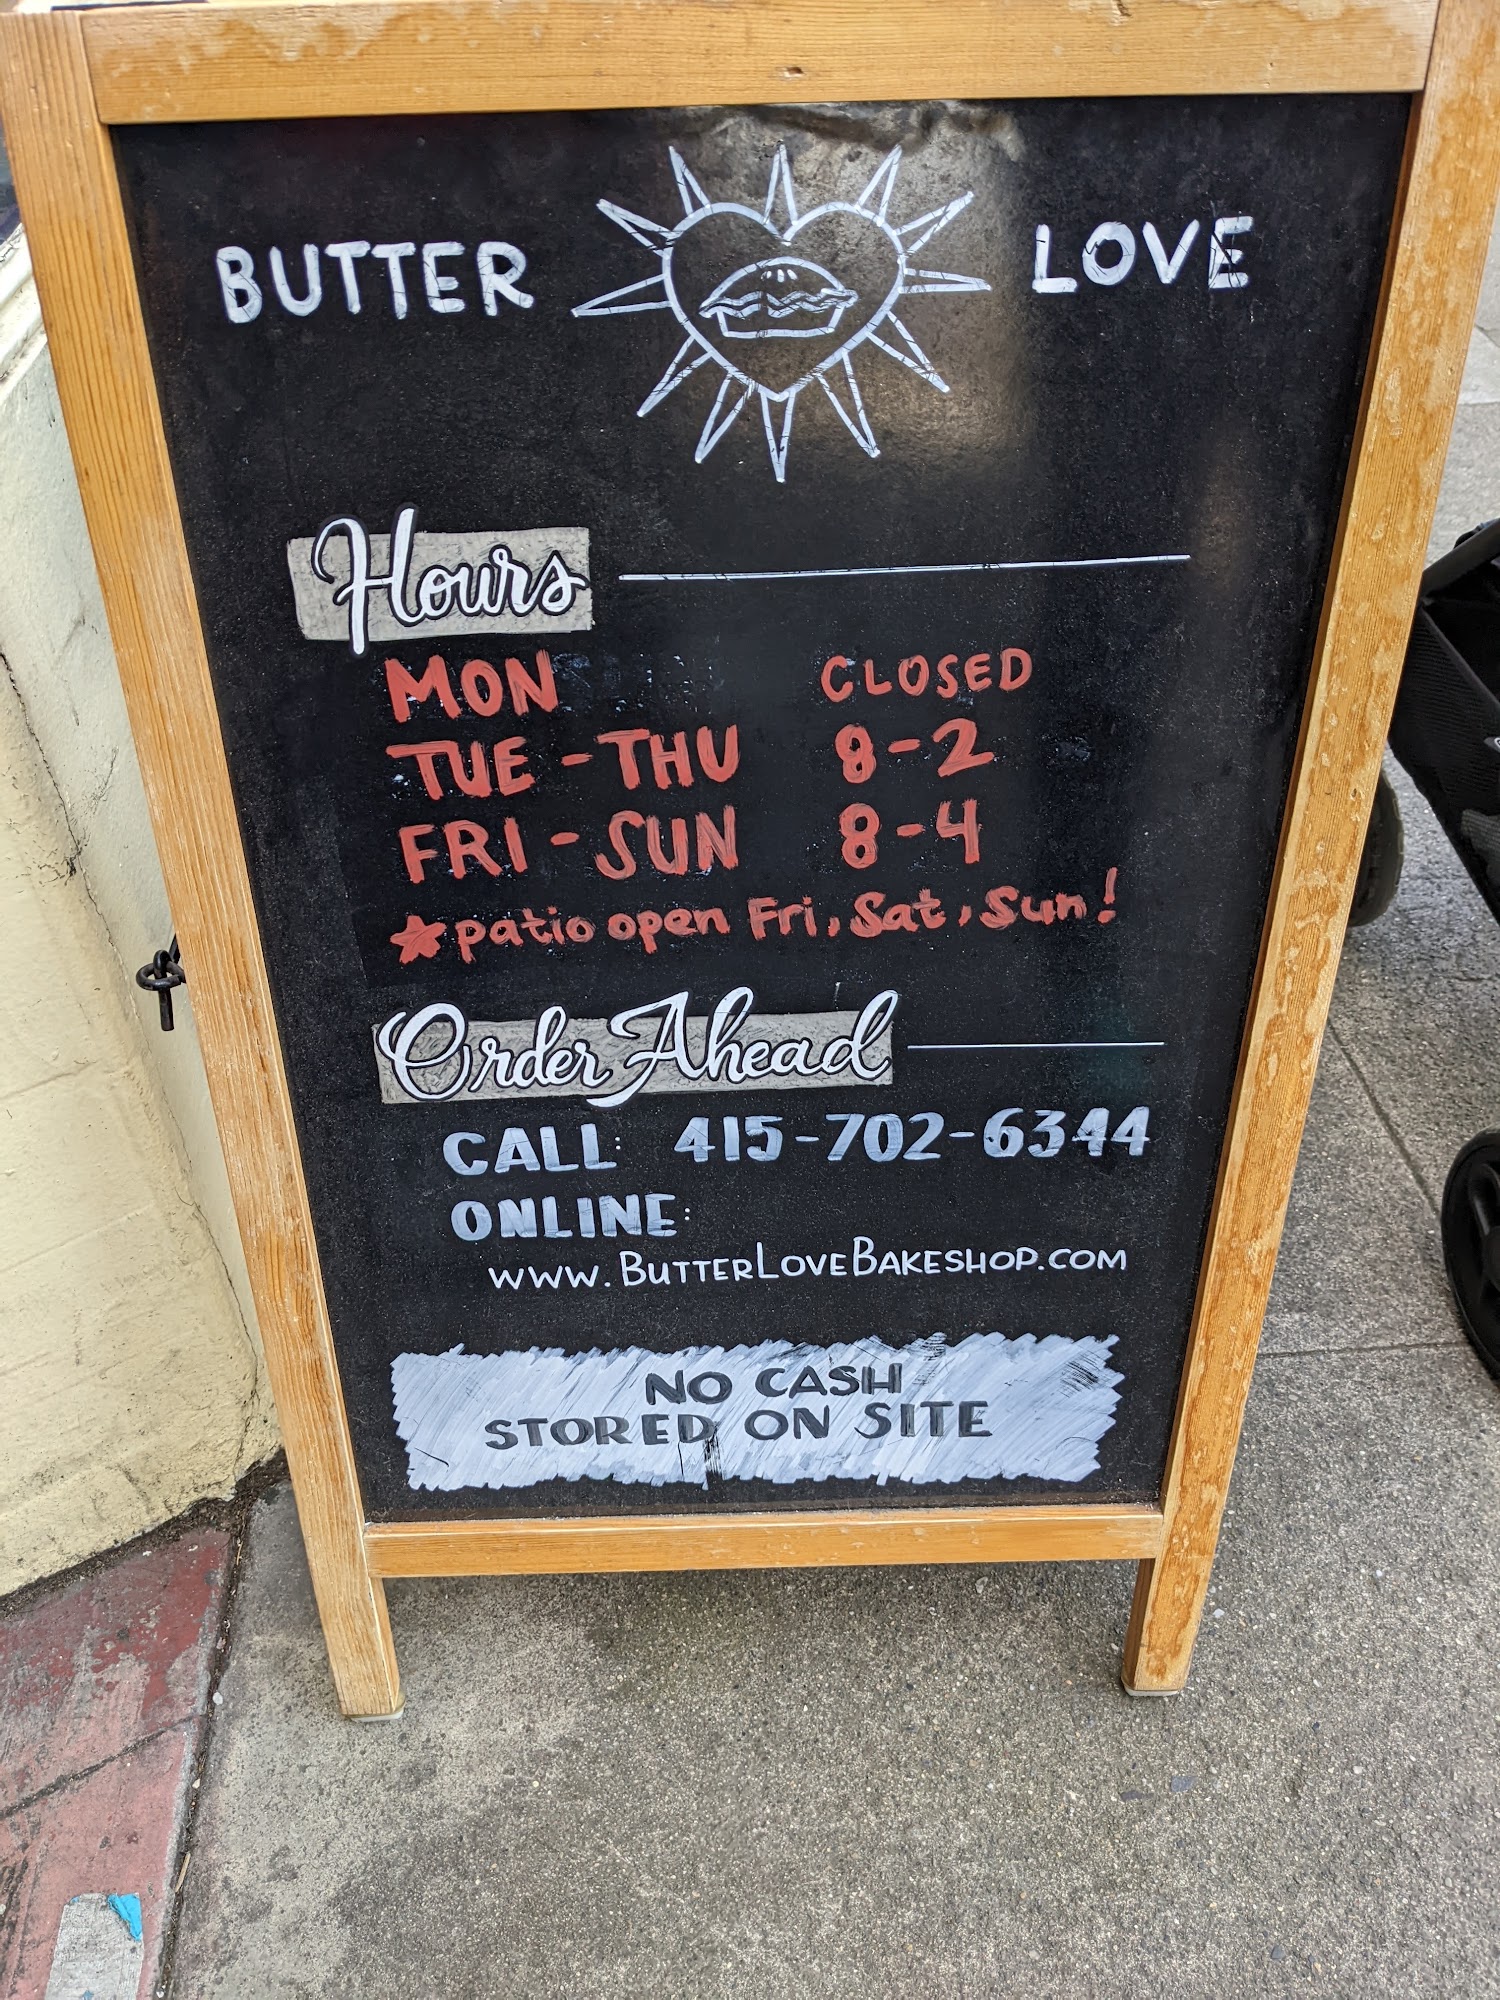 BUTTER LOVE
Hours
MON CLOSED
TUE - THU 8-2
FRI - SUN 8-4
★patio open Fri, Sat, Sun!
Order Ahead
CALL: 415-702-6344
ONLINE:
WWW.BUTTERLOVEBAKESHOP.COM
NO CASH
STORED ON SITE